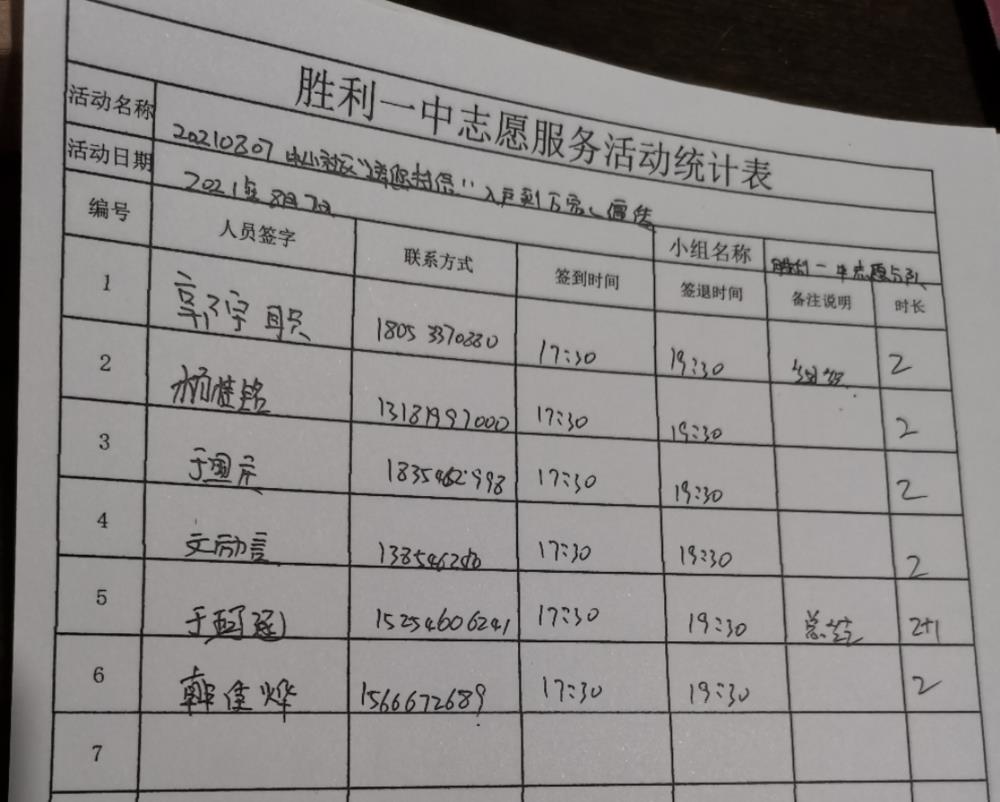 胜利一中志愿服务活动统计表
活动名称 20210807 中心社区"送您封信"入户到万家、宣传
活动日期 2021年8月7日 小组名称 胜利一中志愿
编号 人员签字 联系方式 签到时间 签退时间 备注说明 时长
1 18053370880 17:30 19:30 2
2 杨桂铭 13181997000 17:30 19:30 2
3 于国庆 17:30 19:30 2
4 文励言 17:30 19:30 2
5 于 15254606241 17:30 19:30 总 2+1
6 韩佳烨 1566672689 17:30 19:30 2
7